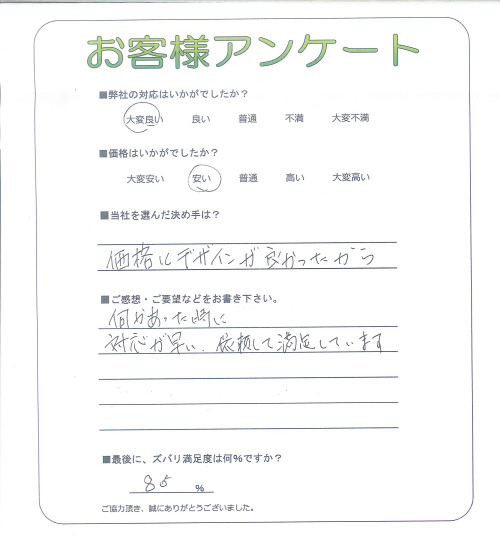 お客様アンケート
■弊社の対応はいかがでしたか？
大変良い 良い 普通 不満 大変不満
■価格はいかがでしたか？
大変安い 安い 普通 高い 大変高い
■当社を選んだ決め手は？
価格とデザインが良かったから
■ご感想・ご要望などをお書き下さい。
何かあった時に
対応が早い、依頼して満足しています
■最後に、ズバリ満足度は何%ですか？
85 %
ご協力頂き、誠にありがとうございました。